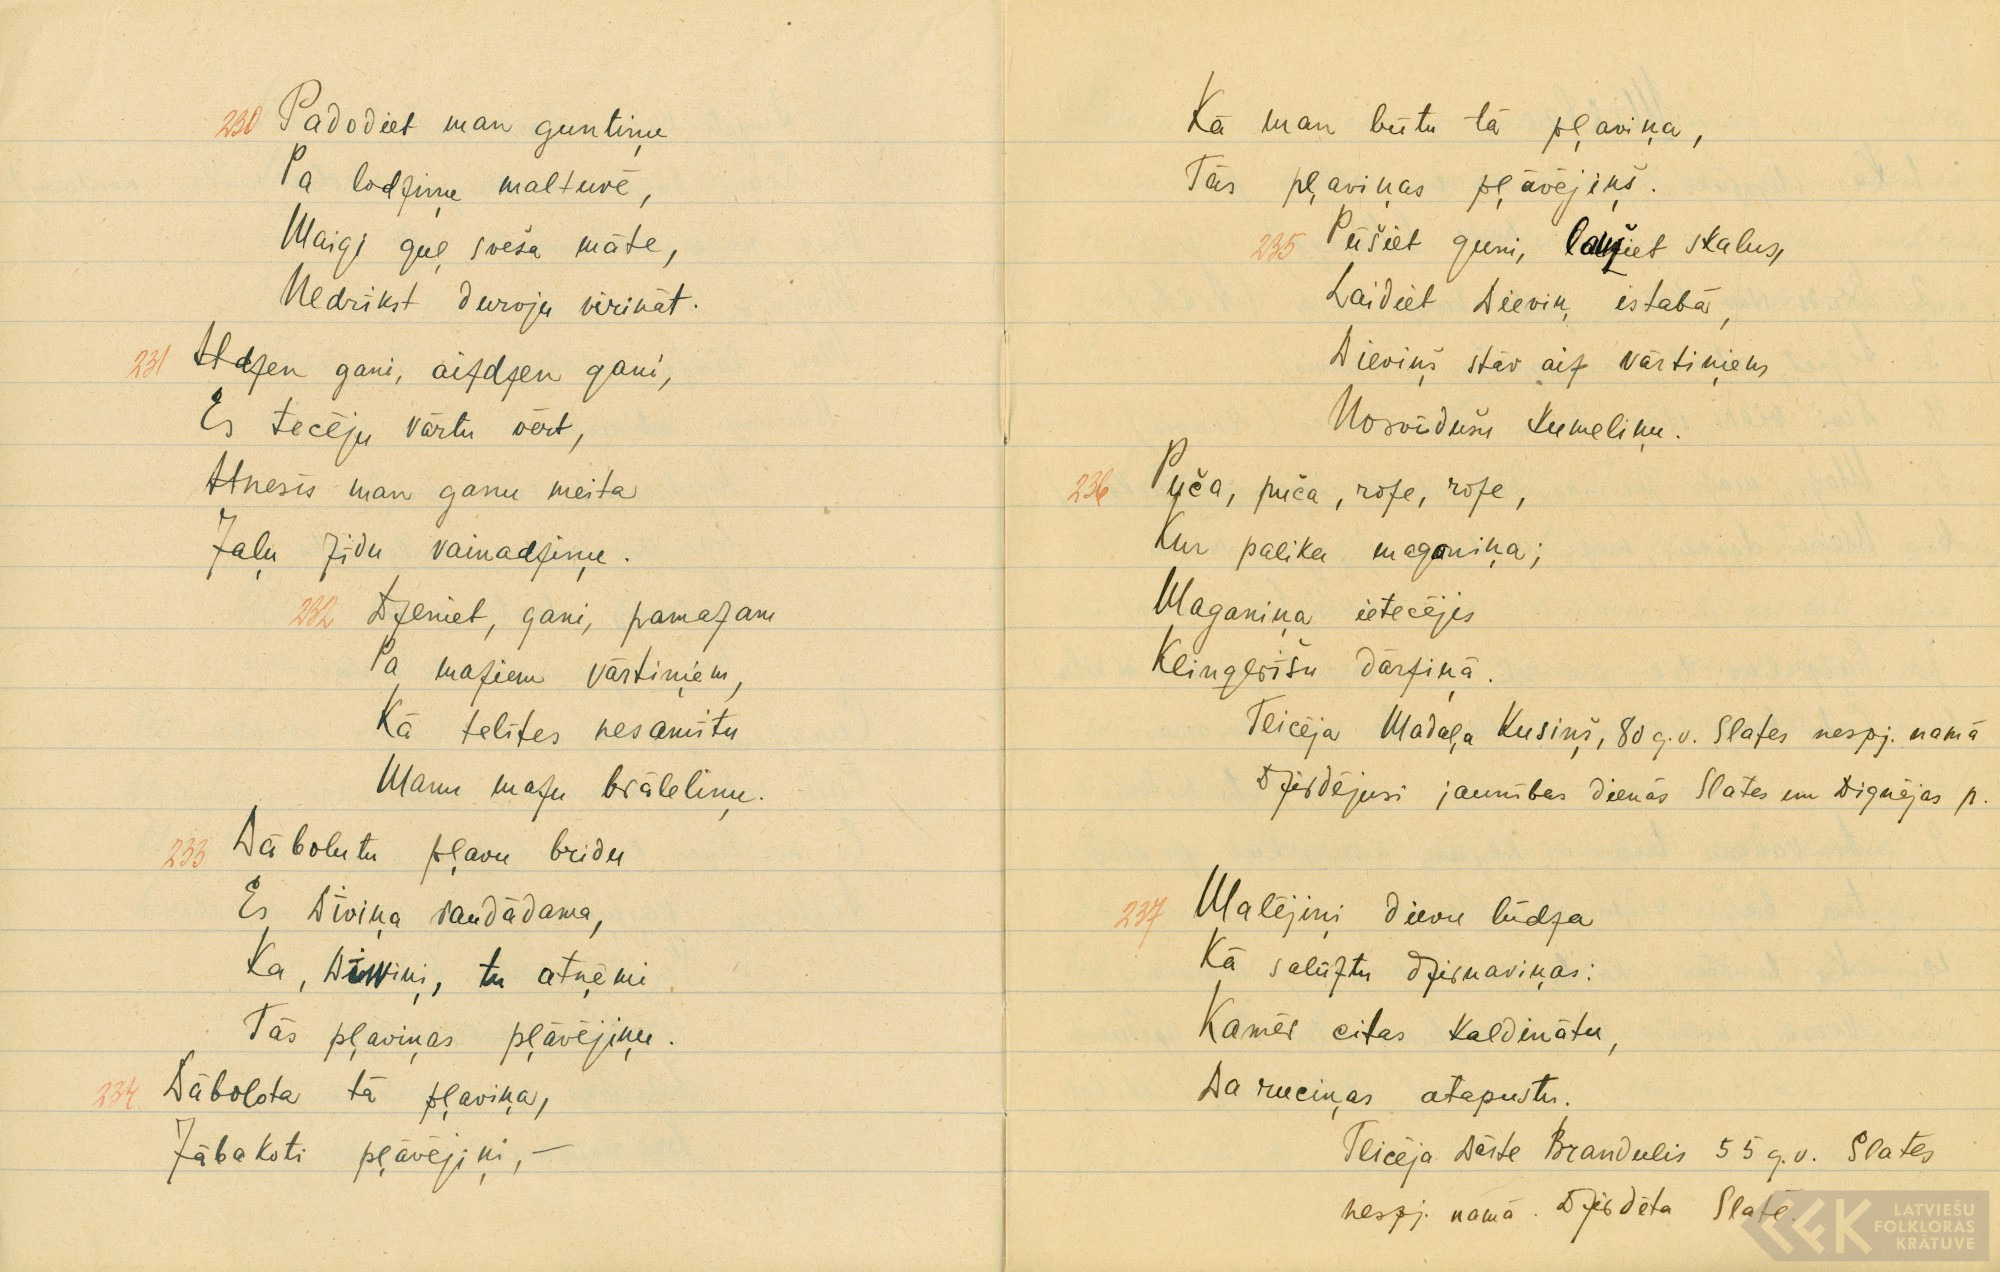 230 Padodiet man guntiņu
Pa lodziņu maltuvē,
Maigi guļ sveša māte,
Nedrīkst durvju virināt.
231 Atdzen gani, aizdzen gani,
Es tecēju vārtu vērt,
Atnesīs man ganu meita
Zaļu zīdu vainadziņu.
232 Dzeniet, gani, pamazam
Pa maziem vārtiņiem,
Kā telītes nesamītu
Manu mazu brāleliņu.
233 Dābolutu pļavu bridu
Es Dīviņa raudādama,
Ka, Dīviņi, tu atņēmi
Tās pļaviņas pļāvējiņu.
234 Dābolota tā pļaviņa,
Zābakoti pļāvējiņi, —
Kā man būtu tā pļaviņa,
Tās pļaviņas pļāvējiņš.
235 Pūšiet guni, lauziet skalus,
Laidiet Dieviņ istabā,
Dieviņš stāv aiz vārtiņiem
Nosvīdušu kumeliņu.
236 Pyča, puča, roze, roze,
Kur palika maganiņa;
Maganiņa ietecējis
Klingerīšu dārziņā.
Teicēja Madaļa Kusiņš, 80 g.v. Slates nespj. namā
Dzirdējusi jaunības dienās Slates un Dignājas p.
237 Malējiņi dievu lūdza
Kā salūztu dzirnaviņas:
Kamēr citas kaldinātu,
Da ruciņas atapustu.
Teicēja Dārte Brandulis 55 g.v. Slates
nespj. namā. Dzirdēta Slatē.
LATVIEŠU
FOLKLORAS
KRĀTUVE